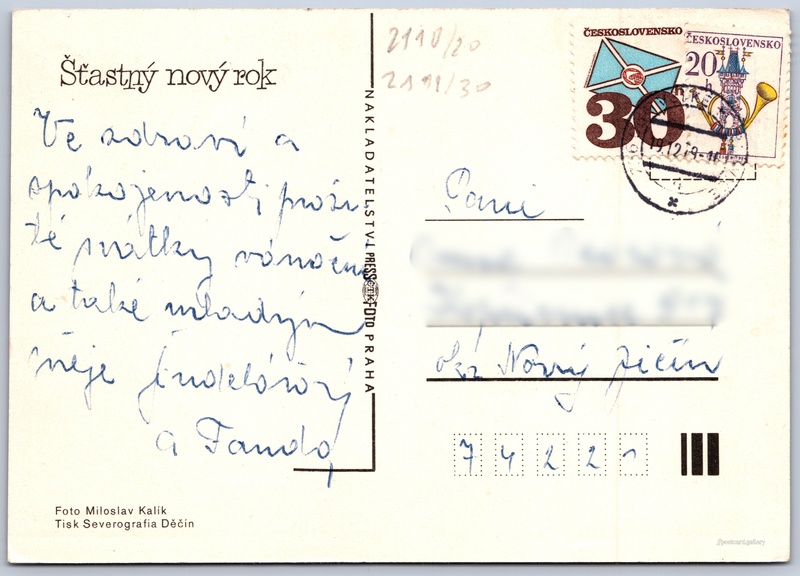 Šťastný nový rok
Ve zdraví a
spokojenosti proži
té svátky vánoční
a také mladým
přeje
a Fanda
NAKLADATELSTVÍ PRESSFOTO PRAHA
Foto Miloslav Kalík
Tisk Severografia Děčín
2110/20
2111/30
ČESKOSLOVENSKO
30
ČESKOSLOVENSKO
20 h
19.12.79-11
Paní
okr Nový Jičín
7 4 2 2 1